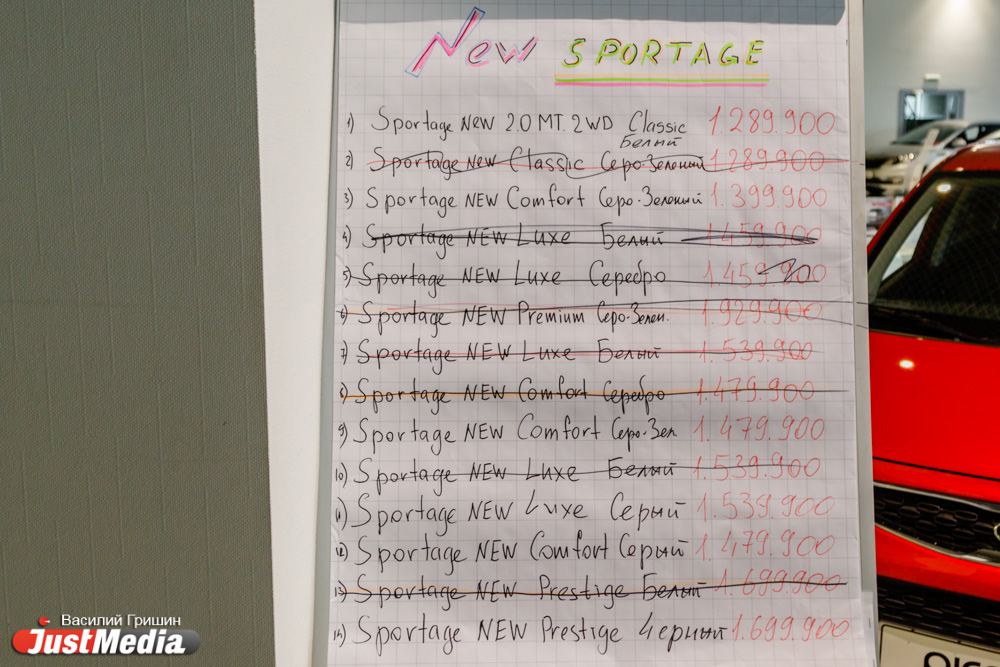 New SPORTAGE
1) Sportage NEW 2.0 MT. 2WD Classic 1.289.900
Белый
2) Sportage NEW Classic Серо-Зеленый 1.289.900
3) Sportage NEW Comfort Серо-Зеленый 1.399.900
4) Sportage NEW Luxe Белый 1.459.900
5) Sportage NEW Luxe Серебро 1.459.900
6) Sportage NEW Premium Серо-Зелен. 1.929.900
7) Sportage NEW Luxe Белый 1.539.900
8) Sportage NEW Comfort Серебро 1.479.900
9) Sportage NEW Comfort Серо-Зел. 1.479.900
10) Sportage NEW Luxe Белый 1.539.900
11) Sportage NEW Luxe Серый 1.539.900
12) Sportage NEW Comfort Серый 1.479.900
13) Sportage NEW Prestige Белый 1.699.900
Sportage NEW Prestige Черный 1.699.900
Василий Гришин
JustMedia